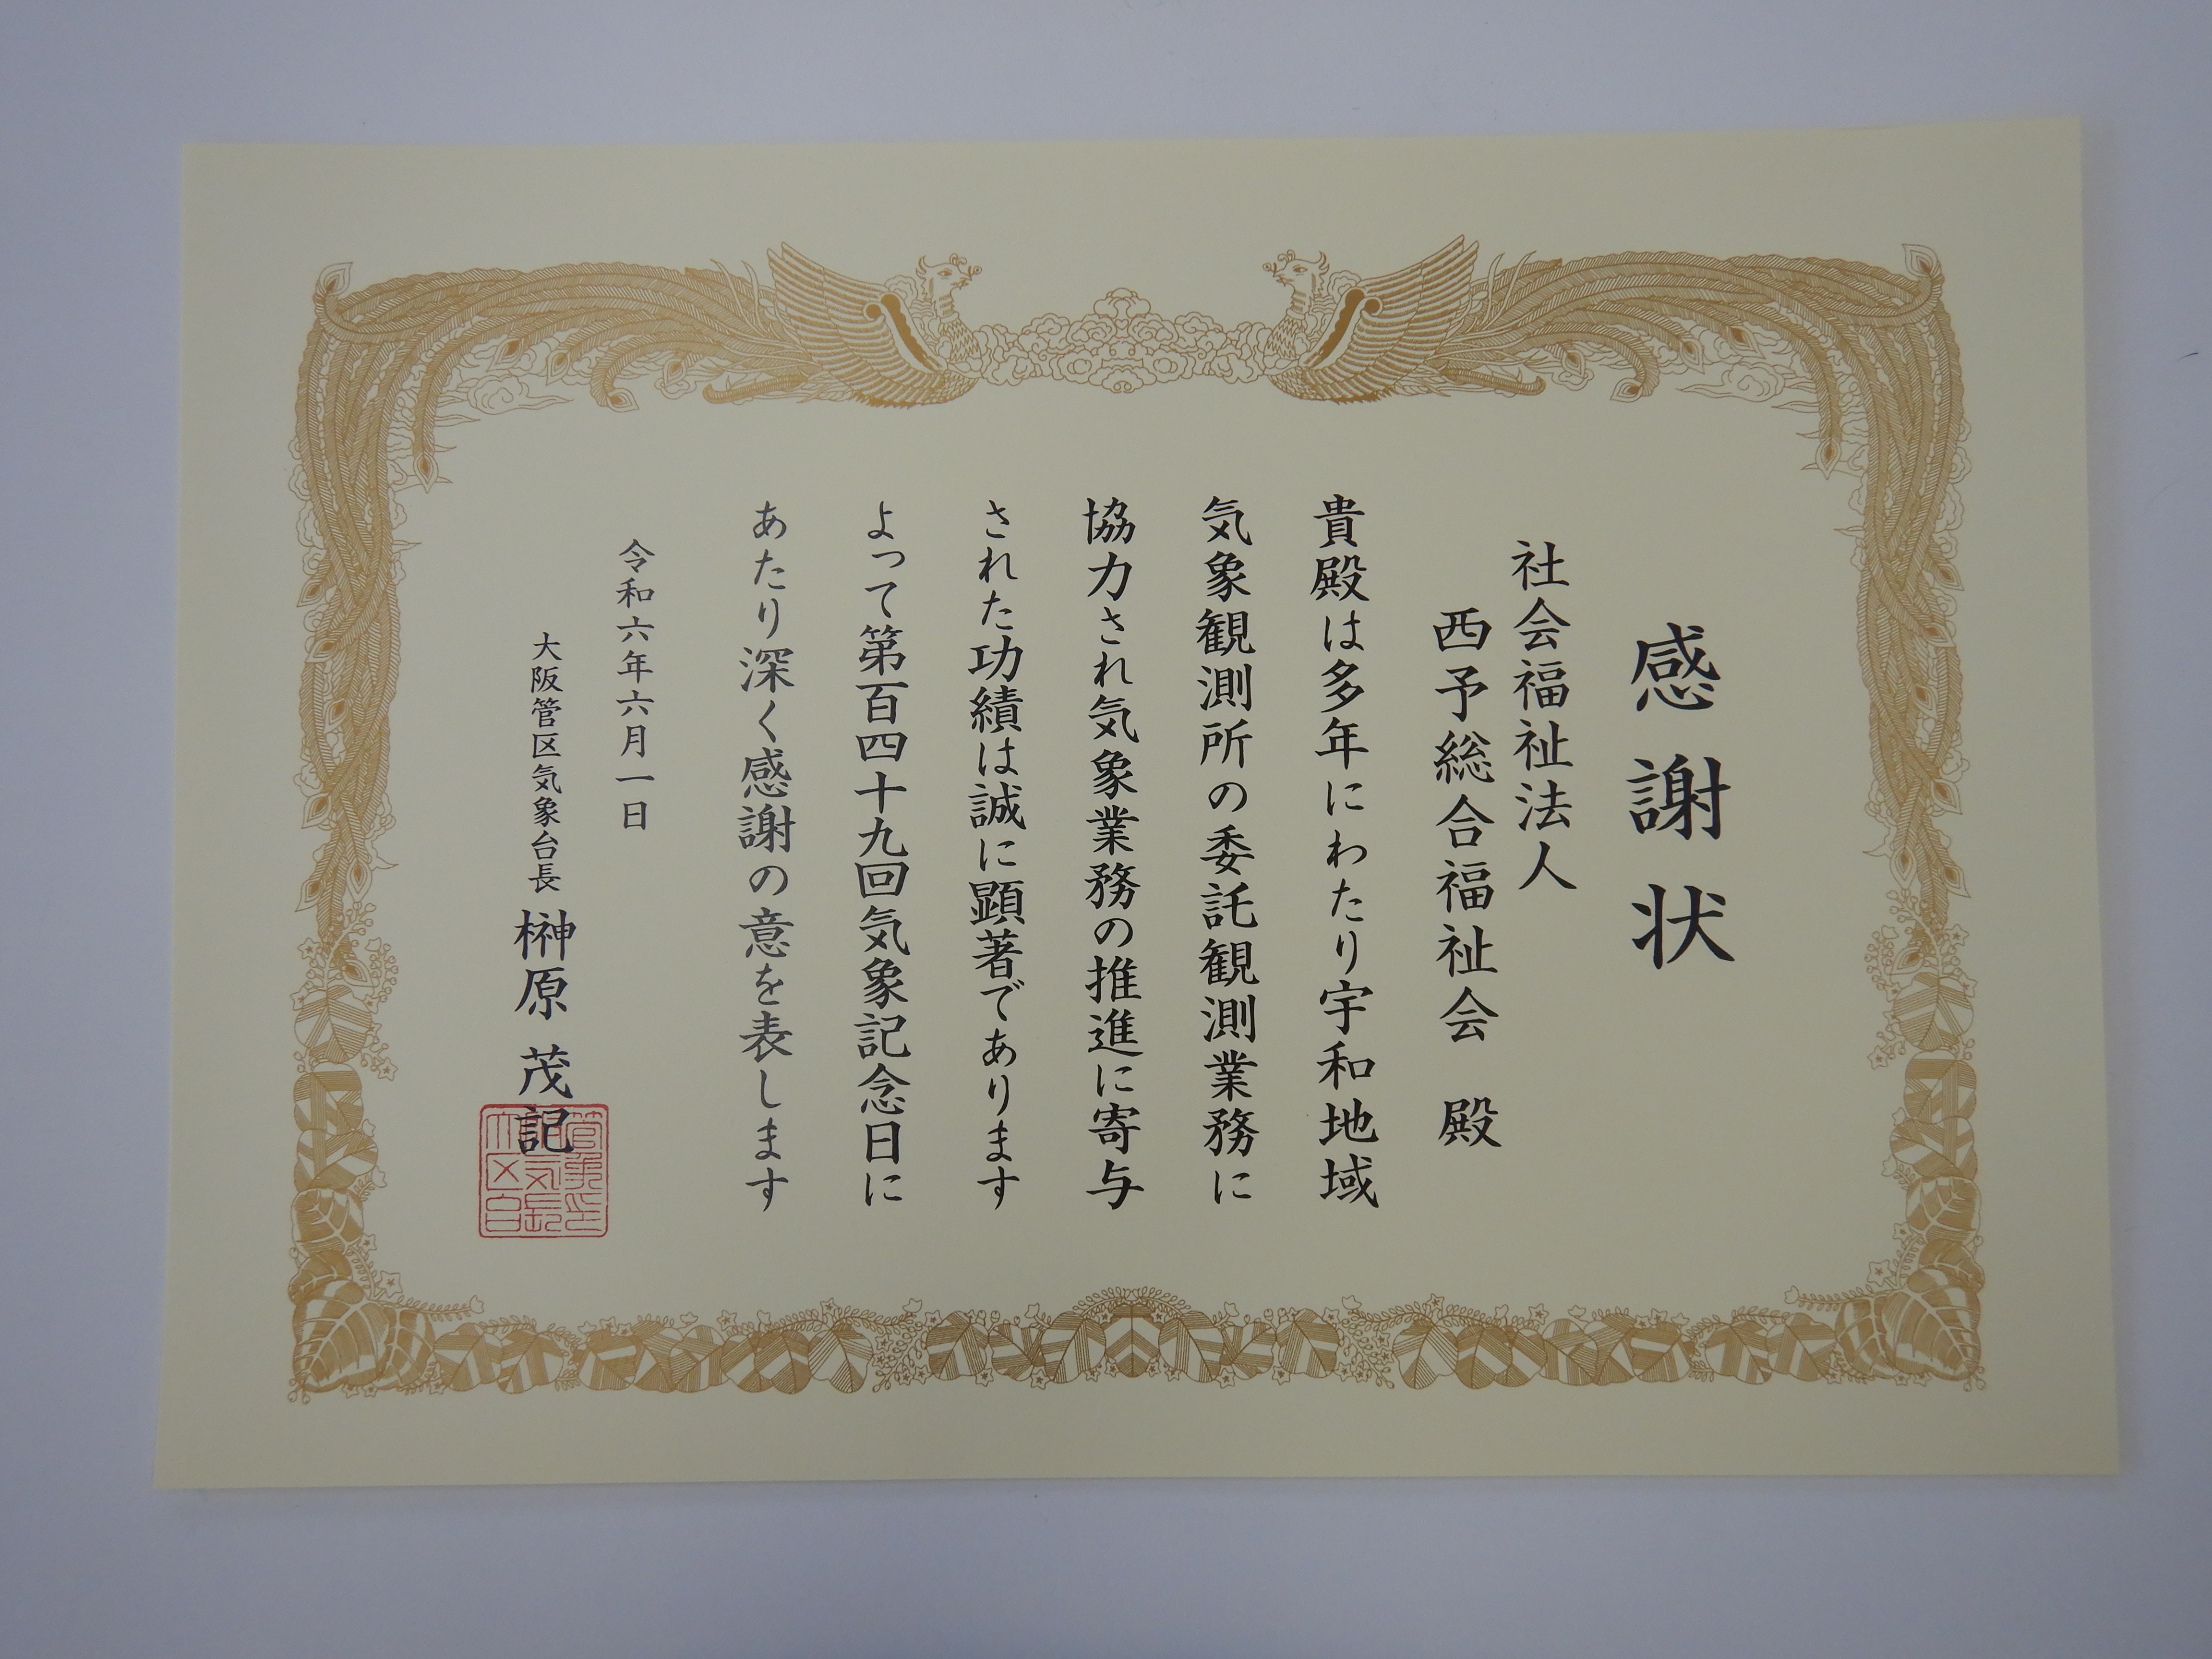 感謝状
社会福祉法人
西予総合福祉会 殿
貴殿は多年にわたり宇和地域
気象観測所の委託観測業務に
協力され気象業務の推進に寄与
された功績は誠に顕著であります
よって第百四十九回気象記念日に
あたり深く感謝の意を表します
令和六年六月一日
大阪管区気象台長 榊原 茂記